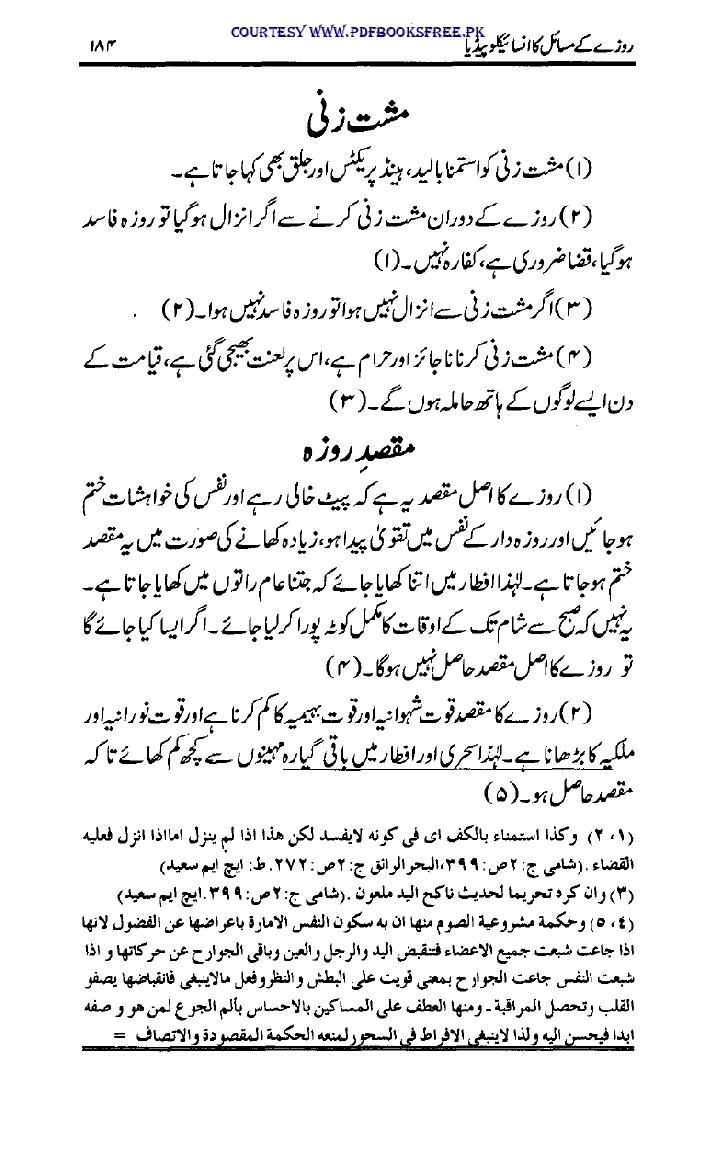 COURTESY WWW.PDFBOOKSFREE.PK
روزے کے مسائل کا انسائیکلوپیڈیا ۱۸۴
مشت زنی
(۱) مشت زنی کو استمنا بالید، ہینڈ پریکٹس اور جلق بھی کہا جاتا ہے۔
(۲) روزے کے دوران مشت زنی کرنے سے اگر انزال ہوگیا تو روزہ فاسد
ہوگیا، قضا ضروری ہے، کفارہ نہیں۔ (۱)
(۳) اگر مشت زنی سے انزال نہیں ہوا تو روزہ فاسد نہیں ہوا۔ (۲)
(۴) مشت زنی کرنا ناجائز اور حرام ہے، اس پر لعنت بھیجی گئی ہے، قیامت کے
دن ایسے لوگوں کے ہاتھ حاملہ ہوں گے۔ (۳)
مقصدِ روزہ
(۱) روزے کا اصل مقصد یہ ہے کہ پیٹ خالی رہے اور نفس کی خواہشات ختم
ہوجائیں اور روزہ دار کے نفس میں تقویٰ پیدا ہو، زیادہ کھانے کی صورت میں یہ مقصد
ختم ہوجاتا ہے۔ لہٰذا افطار میں اتنا کھایا جائے کہ جتنا عام راتوں میں کھایا جاتا ہے۔
یہ نہیں کہ صبح سے شام تک کے اوقات کا مکمل کوٹہ پورا کرلیا جائے۔ اگر ایسا کیا جائے گا
تو روزے کا اصل مقصد حاصل نہیں ہوگا۔ (۴)
(۲) روزے کا مقصد قوت شہوانیہ اور قوت بہیمیہ کا کم کرنا ہے اور قوت نورانیہ اور
ملکیہ کا بڑھانا ہے۔ لہٰذا سحری اور افطار میں باقی گیارہ مہینوں سے کچھ کم کھائے تاکہ
مقصد حاصل ہو۔ (۵)
(۱، ۲) وكذا استمناء بالكف اى فى كونه لايفسد لكن هذا اذا لم ينزل امااذا انزل فعليه
القضاء. (شامى ج:۲ص:۳۹۹، البحرالرائق ج:۲ص:۲۷۲. ط: ايچ ايم سعيد)
(۳) وان كره تحريما لحديث ناكح اليد ملعون. (شامى ج:۲ص:۳۹۹. ايچ ايم سعيد)
(۴، ۵) وحكمة مشروعية الصوم منها ان به سكون النفس الامارة باعراضها عن الفضول لانها
اذا جاعت شبعت جميع الاعضاء فتنقبض اليد والرجل والعين وباقى الجوارح عن حركاتها و اذا
شبعت النفس جاعت الجوارح بمعنى قويت على البطش والنظر وفعل مالاينبغى فانقباضها يصفو
القلب وتحصل المراقبة۔ ومنها العطف على المساكين بالاحساس بألم الجوع لمن هو وصفه
ابدا فيحسن اليه ولذا لاينبغى الافراط فى السحور لمنعه الحكمة المقصودة والاتصاف =